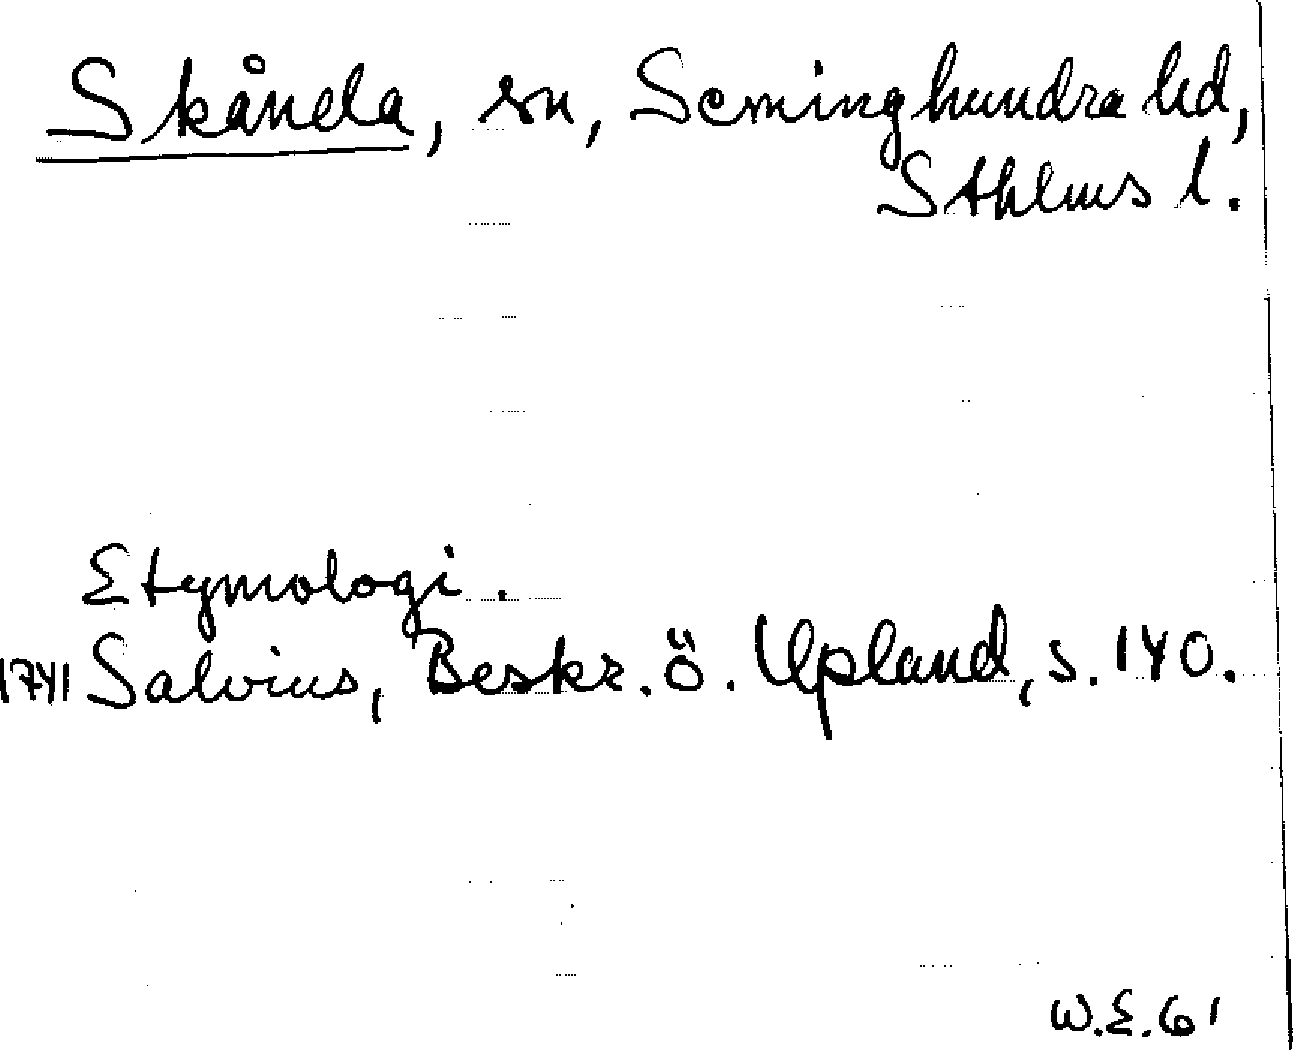 Skånela, sn, Seminghundra hd,
Sthlms l.
Etymologi.
1741 Salvius, Beskr. ö. Upland, s. 140.
W.E. 61